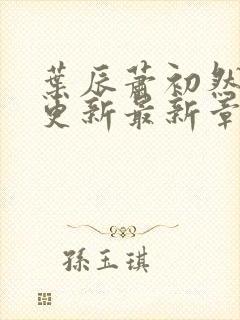 葉辰蕭初然
更新最新章
孫玉琪